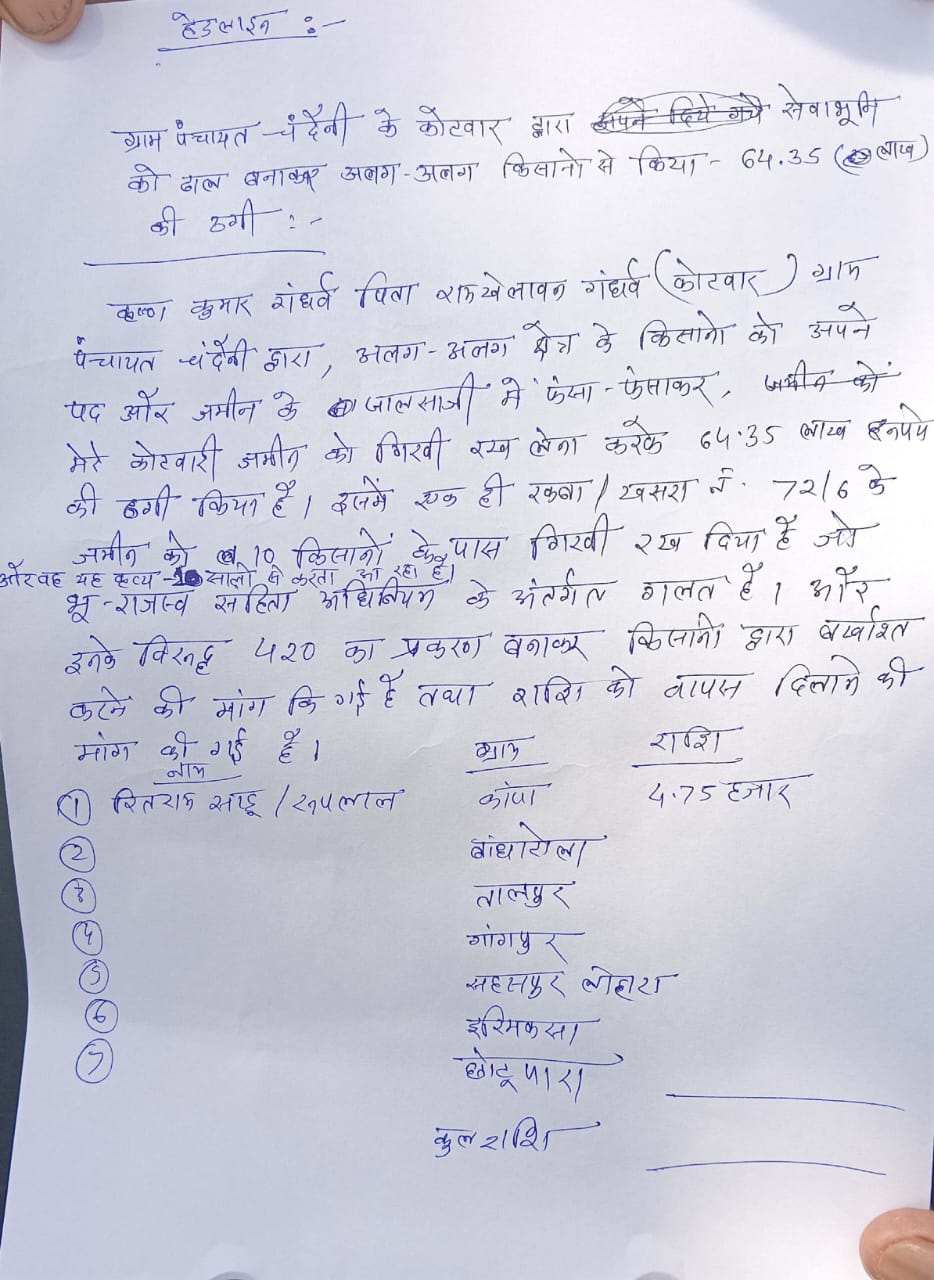 हेडलाइन :-
ग्राम पंचायत चंदैनी के कोटवार द्वारा अपने दिये गये सेवाभूमि
को ढाल बनाकर अलग-अलग किसानो से किया - 64.35 (लाख)
की ठगी :-
कृष्ण कुमार गंधर्व पिता रामखेलावन गंधर्व (कोटवार) ग्राम
पंचायत चंदैनी द्वारा, अलग-अलग क्षेत्र के किसानो को अपने
पद और जमीन के जालसाजी में फंसा-फंसाकर, जमीन को
मेरे कोटवारी जमीन को गिरवी रख लेना करके 64.35 लाख रूपये
की ठगी किया है। इसमें एक ही रकबा/खसरा नं. 72/6 के
जमीन को 10 किसानों के पास गिरवी रख दिया है जो
और वह यह कृत्य 10 सालो से करता आ रहा है।
भू-राजस्व संहिता अधिनियम के अंतर्गत गलत है। और
इनके विरूद्ध 420 का प्रकरण बनाकर किसानो द्वारा बर्खाश्त
करने की मांग कि गई है तथा राशि को वापस दिलाने की
मांग की गई है।
नाम ग्राम राशि
① रितराम साहू/रूपलाल कोपा 4.75 हजार
② बांधाटोला
③ तालपुर
④ गांगपुर
⑤ सहसपुर लोहारा
⑥ इरिमकसा
⑦ छोटूपारा
कुल राशि